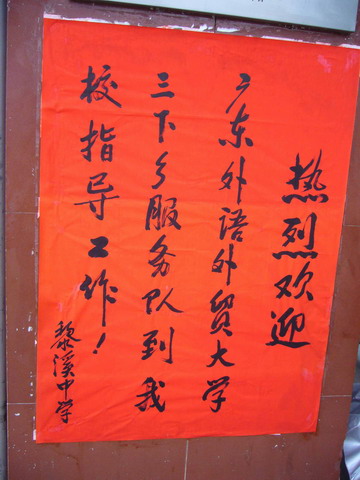 热烈欢迎
广东外语外贸大学
三下乡服务队到我
校指导工作！
黎溪中学